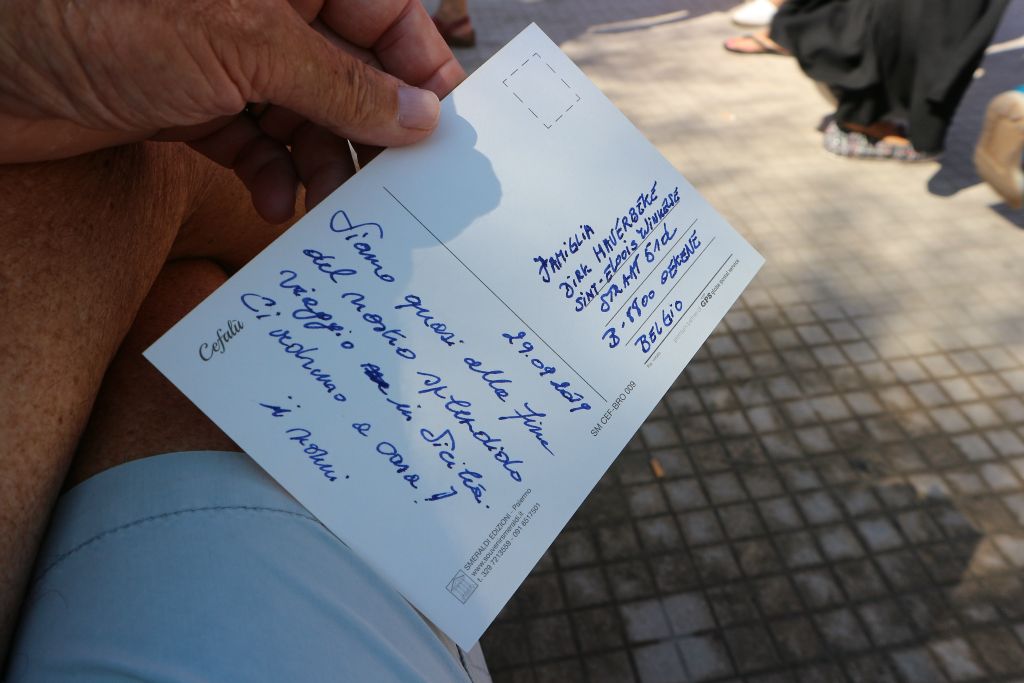 Cefalù
29.09.2019
Siamo quasi alla fine
del nostro splendido
viaggio in Sicilia.
Ci vedremo a casa!
i nonni
FAMIGLIA
DIRK HAVERBEKE
SINT-ELOOIS WINKELSE
STRAAT 61d
B-8800 OEKENE
BELGIO
GPS global postal service
SM CEF-BRO 009
SMERALDI EDIZIONI - Palermo
www.souvenirsmeraldi.it
t. 329 7213559 - 091 6517501